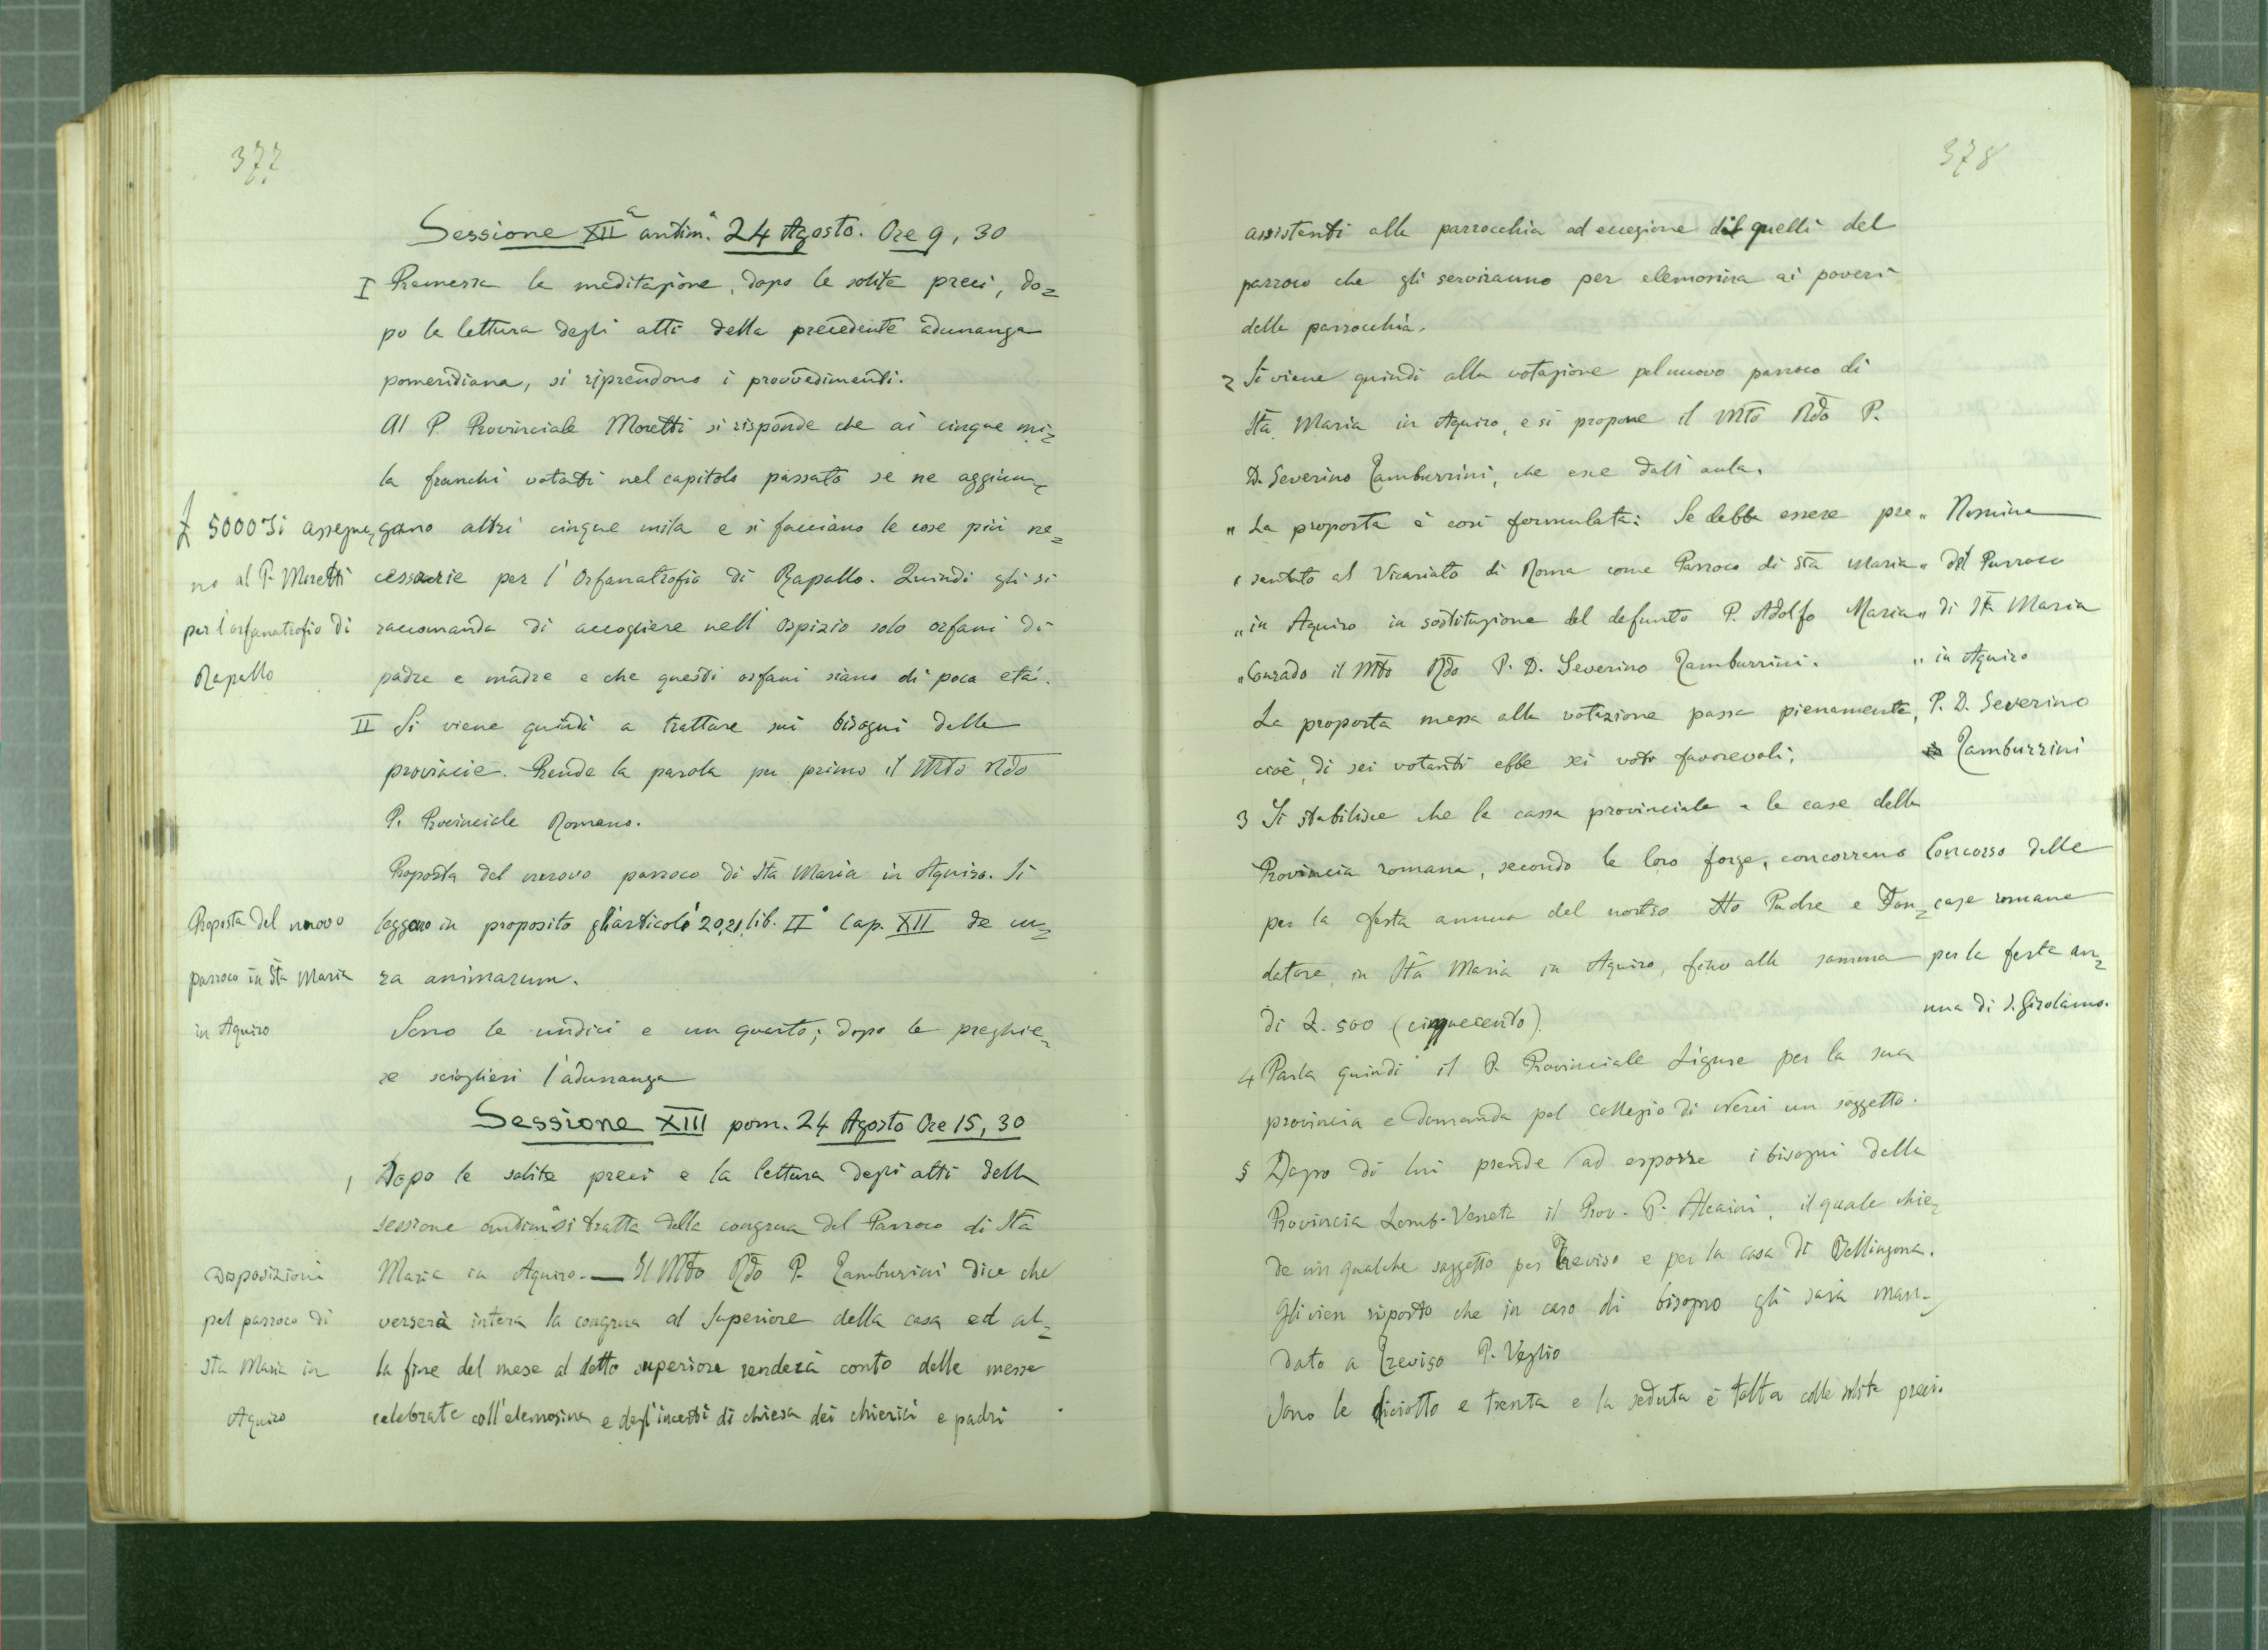 377
Sessione XIIa antim.a 24 Agosto. Ore 9,30
I Premessa la meditazione, dopo le solite preci, do=
po la lettura degli atti della precedente adunanza
pomeridiana, si riprendono i provvedimenti.
Al P. Provinciale Moretti si risponde che ai cinque mi=
la franchi votati nel capitolo passato se ne aggiun=
gano altri cinque mila e si facciano le cose più ne=
cessarie per l'Orfanatrofio di Rapallo. Quindi gli si
raccomanda di accogliere nell'Ospizio solo orfani di
padre e madre e che questi orfani siano di poca età.
£ 5000 Si assegna=
no al P. Moretti
per l'orfanatrofio di
Rapallo
II Si viene quindi a trattare sui bisogni delle
provincie. Prende la parola per primo il Mto Rdo
P. Provinciale Romano.
Proposta del nuovo parroco di Sta Maria in Aquiro. Si
leggono in proposito gli articoli 20,21, lib. II° Cap. XII de cu=
ra animarum.
Proposta del nuovo
parroco in Sta Maria
in Aquiro
Sono le undici e un quarto; dopo le preghie=
re sciogliesi l'adunanza
Sessione XIII pom. 24 Agosto Ore 15,30
1 Dopo le solite preci e la lettura degli atti della
sessione antima si tratta della congrua del Parroco di Sta
Maria in Aquiro. — Il Mto Rdo P. Tamburini dice che
verserà intera la congrua al Superiore della casa ed al=
la fine del mese al detto superiore renderà conto delle messe
celebrate coll'elemosina e degl'incerti di chiesa dei chierici e padri
Disposizioni
pel parroco di
Sta Maria in
Aquiro
378
assistenti alla parrocchia ad eccezione di quelli del
parroco che gli serviranno per elemosina ai poveri
della parrocchia.
2 Si viene quindi alla votazione pel nuovo parroco di
Sta Maria in Aquiro, e si propone il Mto Rdo P.
D. Severino Tamburrini, che esce dall'aula.
" La proposta è così formulata: Se debba essere pre
" sentato al Vicariato di Roma come Parroco di Sta Maria
" in Aquiro in sostituzione del defunto P. Adolfo Maria
" Conrado il Mto Rdo P. D. Severino Tamburrini.
La proposta messa alla votazione passa pienamente,
cioè, di sei votanti ebbe sei voti favorevoli;
" Nomina
" del Parroco
" di Sta Maria
" in Aquiro
P. D. Severino
Tamburrini
3 Si stabilisce che la cassa provinciale e le case della
Provincia romana, secondo le loro forze, concorrano
per la festa annua del nostro Sto Padre e Fon=
datore, in Sta Maria in Aquiro, fino alla somma
di L. 500 (cinquecento).
Concorso delle
case romane
per la festa an=
nua di S. Girolamo.
4 Parla quindi il P. Provinciale Ligure per la sua
provincia e domanda pel collegio di Nervi un soggetto.
5 Dopo di lui prende ad esporre i bisogni della
Provincia Lomb-Veneta il Prov. P. Alcaini, il quale chie=
de un qualche soggetto per Treviso e per la casa di Bellinzona.
Gli vien risposto che in caso di bisogno gli sarà man=
dato a Treviso P. Veglio
Sono le diciotto e trenta e la seduta è tolta colle solite preci.